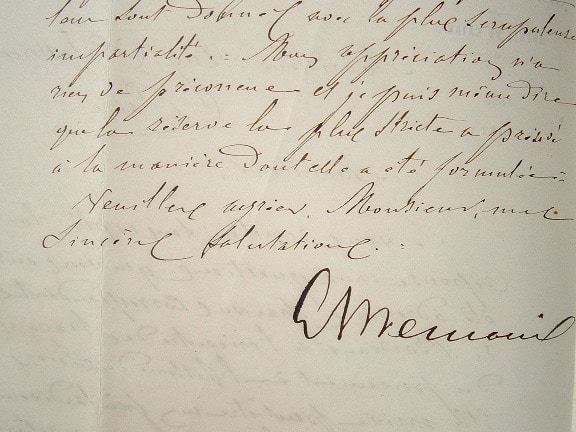 leur sont donnés avec la plus scrupuleuse
impartialité. Mon appréciation n'a
rien de préconçue et je puis même dire
que la réserve la plus stricte a présidé
à la manière dont elle a été formulée
Veuillez agréer, Monsieur, mes
Sincères salutations.